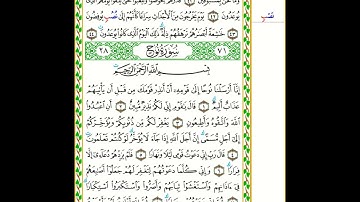 يُوعَدُونَ ٤٢ يَوْمَ يَخْرُجُونَ مِنَ ٱلْأَجْدَاثِ سِرَاعًا كَأَنَّهُمْ إِلَىٰ نُصُبٍ يُوفِضُونَ
٤٣ خَٰشِعَةً أَبْصَٰرُهُمْ تَرْهَقُهُمْ ذِلَّةٌ ذَٰلِكَ ٱلْيَوْمُ ٱلَّذِى كَانُوا۟ يُوعَدُونَ ٤٤
نُصُبٍ
٧١ سُورَةُ نُوحٍ ٢٨
بِسْمِ ٱللَّهِ ٱلرَّحْمَٰنِ ٱلرَّحِيمِ
إِنَّآ أَرْسَلْنَا نُوحًا إِلَىٰ قَوْمِهِۦٓ أَنْ أَنذِرْ قَوْمَكَ مِن قَبْلِ أَن يَأْتِيَهُمْ
عَذَابٌ أَلِيمٌ ١ قَالَ يَٰقَوْمِ إِنِّى لَكُمْ نَذِيرٌ مُّبِينٌ ٢ أَنِ ٱعْبُدُوا۟
ٱللَّهَ وَٱتَّقُوهُ وَأَطِيعُونِ ٣ يَغْفِرْ لَكُم مِّن ذُنُوبِكُمْ وَيُؤَخِّرْكُمْ
إِلَىٰٓ أَجَلٍ مُّسَمًّى إِنَّ أَجَلَ ٱللَّهِ إِذَا جَآءَ لَا يُؤَخَّرُ لَوْ كُنتُمْ تَعْلَمُونَ
٤ قَالَ رَبِّ إِنِّى دَعَوْتُ قَوْمِى لَيْلًا وَنَهَارًا ٥ فَلَمْ يَزِدْهُمْ دُعَآءِىٓ إِلَّا
فِرَارًا ٦ وَإِنِّى كُلَّمَا دَعَوْتُهُمْ لِتَغْفِرَ لَهُمْ جَعَلُوٓا۟ أَصَٰبِعَهُمْ
فِىٓ ءَاذَانِهِمْ وَٱسْتَغْشَوْا۟ ثِيَابَهُمْ وَأَصَرُّوا۟ وَٱسْتَكْبَرُوا۟ ٱسْتِكْبَارًا